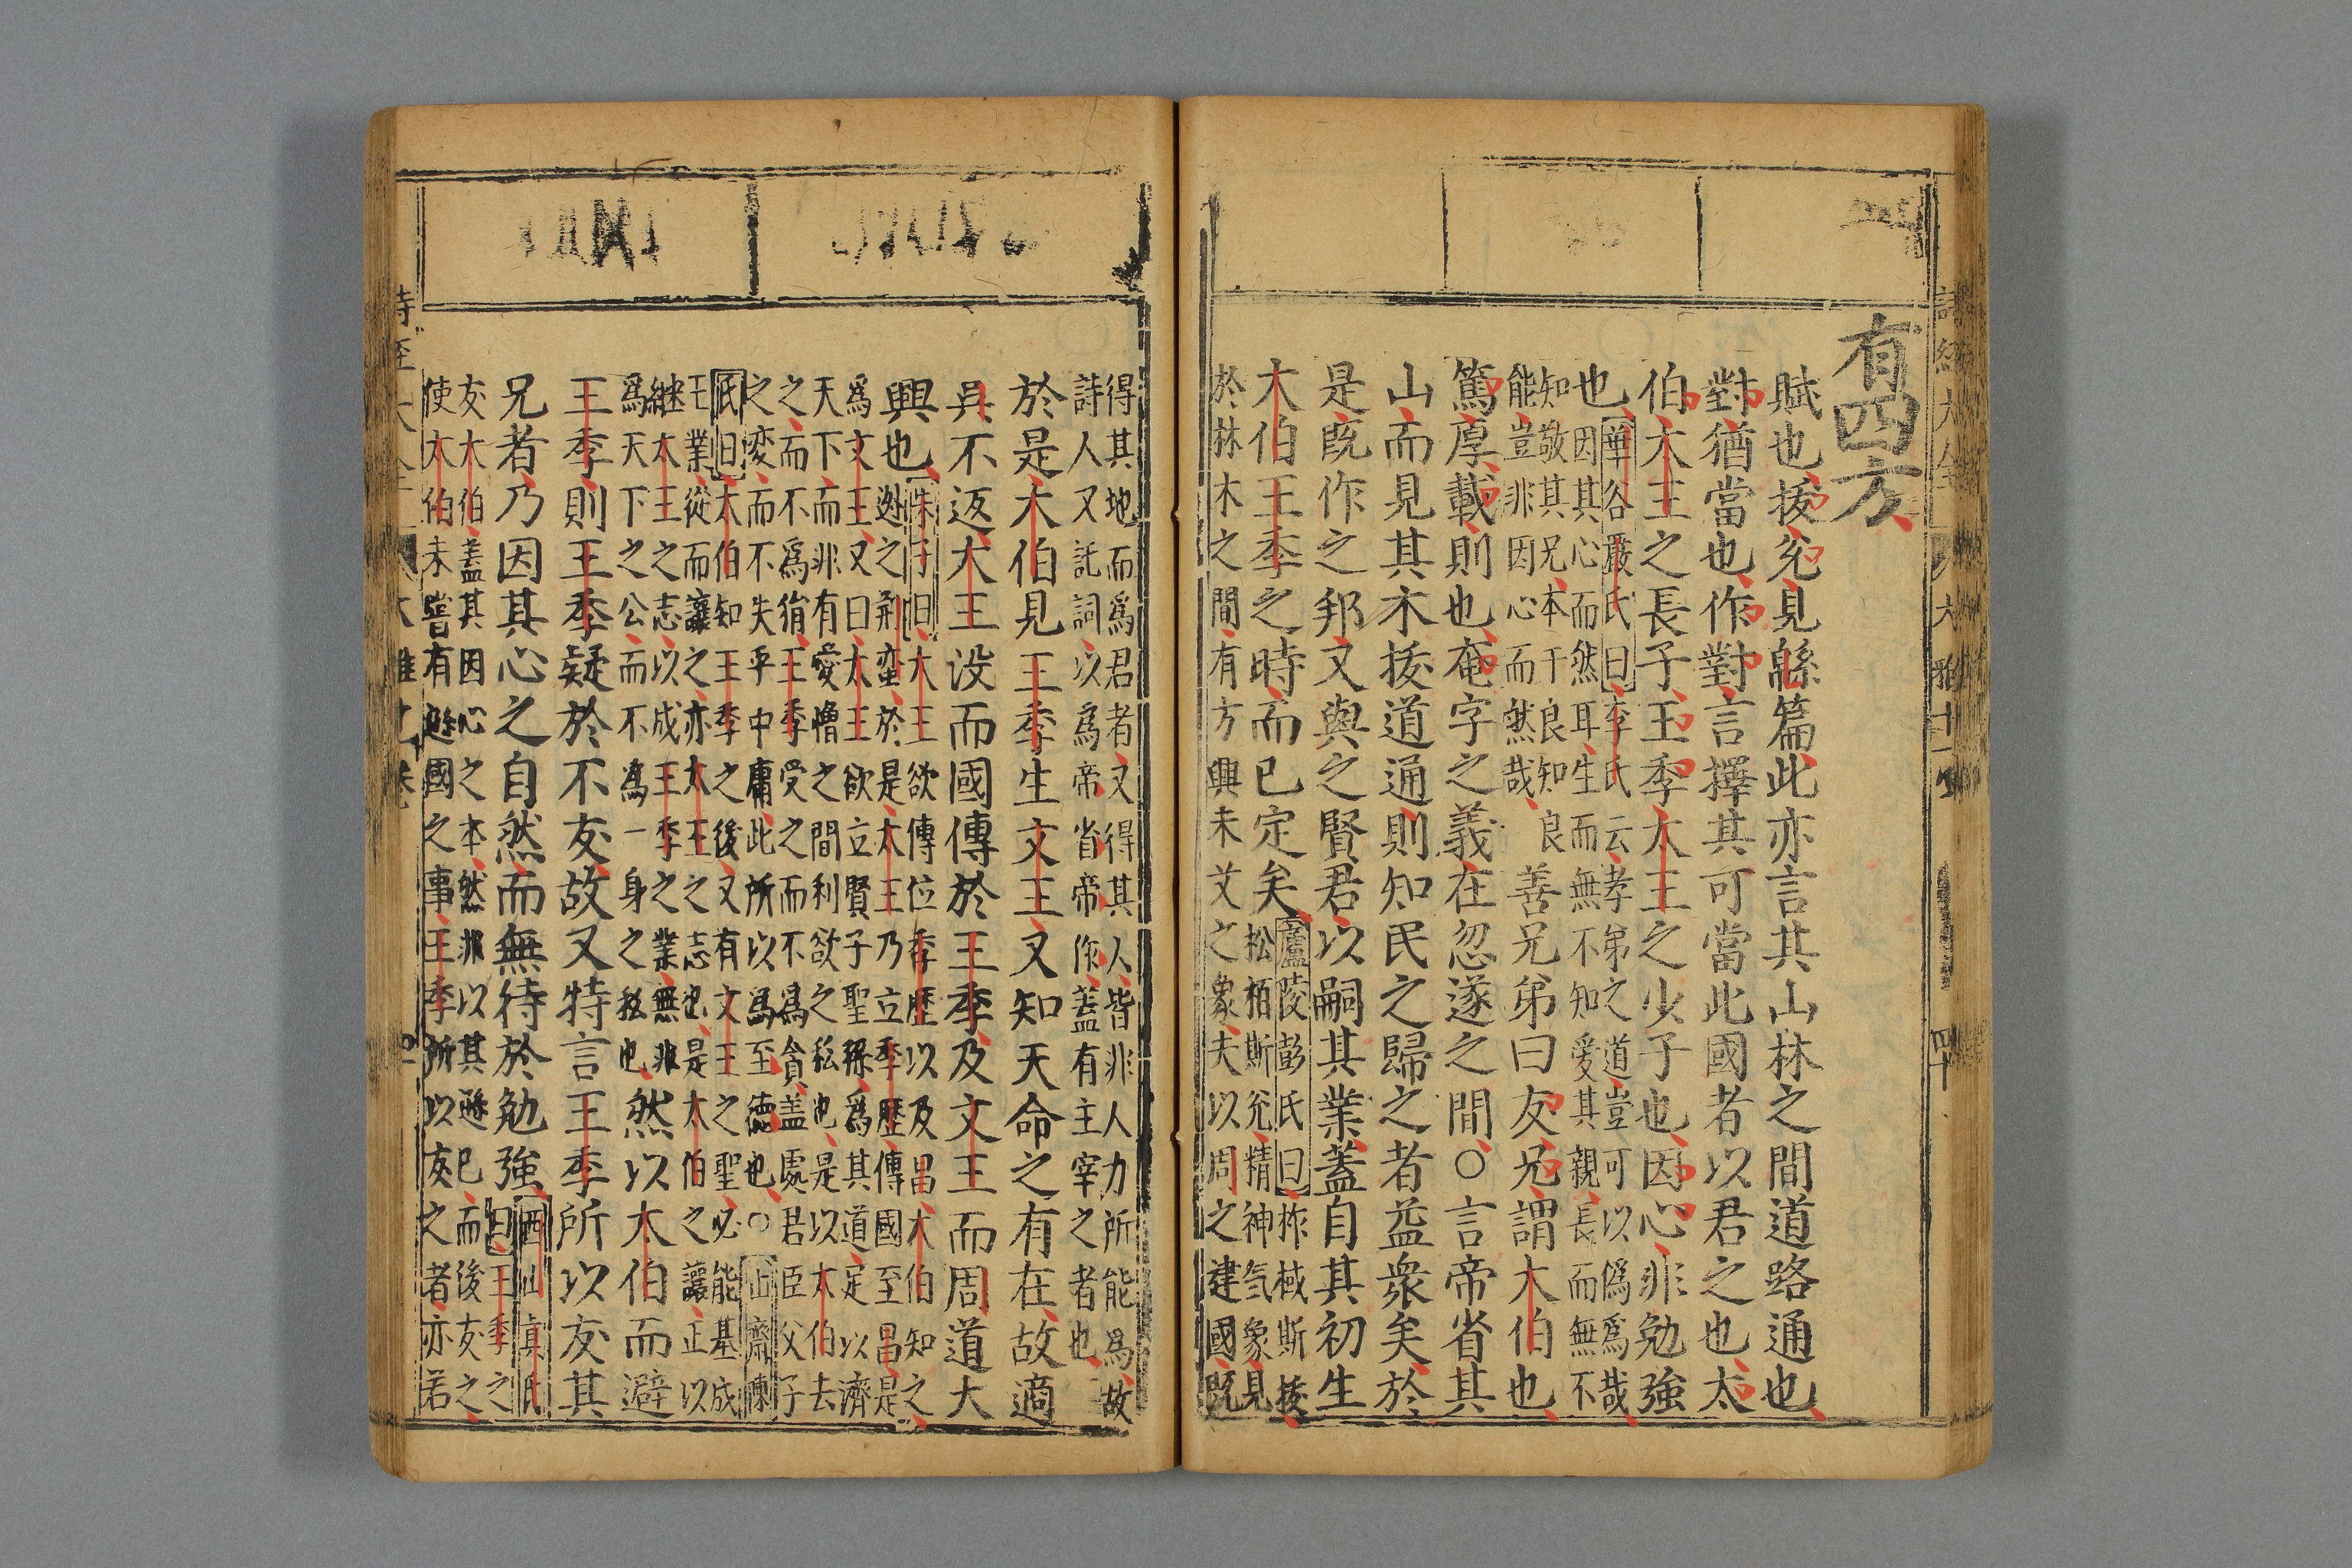 詩經大全 大雅十六 四十
有四方
賦也㧞兊見緜篇此亦言其山林之間道路通也
對猶當也作對言擇其可當此國者以君之也太
伯大王之長子王季太王之少子也因心非勉強
也華谷嚴氏曰李氏云孝弟之道豈可以僞爲哉
因其心而然耳生而無不知愛其親長而無不
知敬其兄本于良知良
能豈非因心而然哉
善兄弟曰友兄謂大伯也
篤厚載則也奄字之義在忽遂之間○言帝省其
山而見其木㧞道通則知民之歸之者益衆矣於
是旣作之邦又與之賢君以嗣其業蓋自其初生
大伯王季之時而已定矣
廬陵彭氏曰柞棫斯㧞
松栢斯兊精神氣象見
於林木之間有方興未艾之象夫以周之建國旣
得其地而爲君者又得其人皆非人力所能爲故
詩人又託詞以爲帝省帝作蓋有主宰之者也
於是大伯見王季生文王又知天命之有在故適
吳不返大王没而國傳於王季及文王而周道大
興也
朱子曰大王欲傳位季歷以及昌大伯知之
迯之荊蛮於是太王乃立季歷傳國至昌是
爲文王又曰太王欲立賢子聖孫爲其道定以濟
天下而非有愛憎之間利欲之私也是以太伯去
之而不爲狷王季受之而不爲貪蓋處君臣父子
之变而不失乎中庸此所以爲至德也○止齋陳
氏曰太伯知王季之後又有文王之聖必能基成
王業從而讓之亦太王之志也是太伯之讓正以
継太王之志以成王季之業無非
爲天下之公而不爲一身之私也
然以太伯而避
王季則王季疑於不友故又特言王季所以友其
兄者乃因其心之自然而無待於勉強
西山真氏
曰王季之
友大伯蓋其因心之本然非以其遜已而後友之
使太伯未嘗有遜國之事王季所以友之者亦若